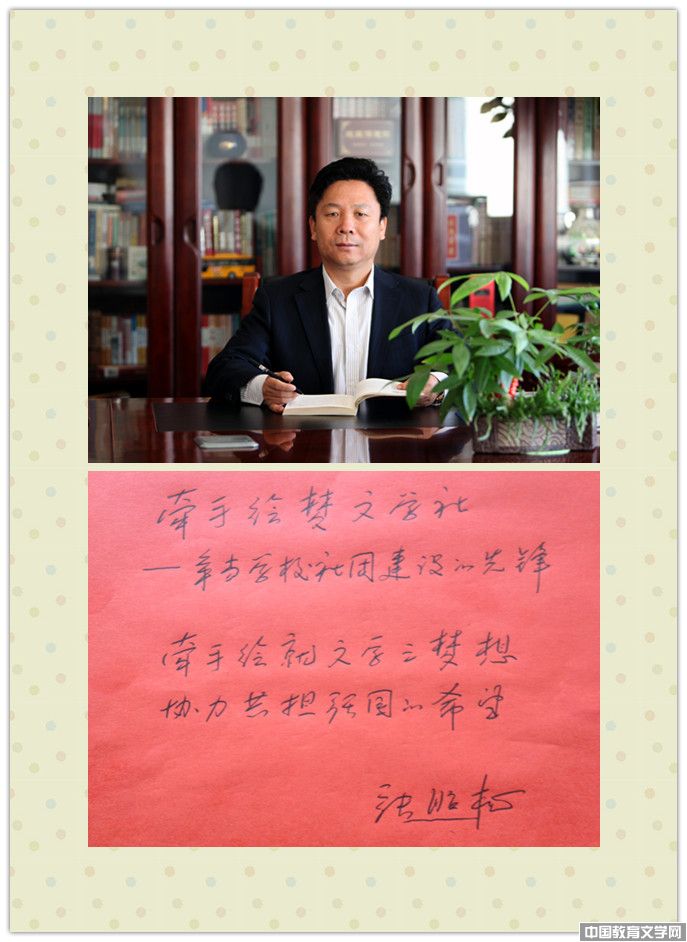 牵手绘梦文学社
—争当学校社团建设的先锋
牵手绘就文学之梦想
协力共担强国的希望
张昭松
中国教育文学网